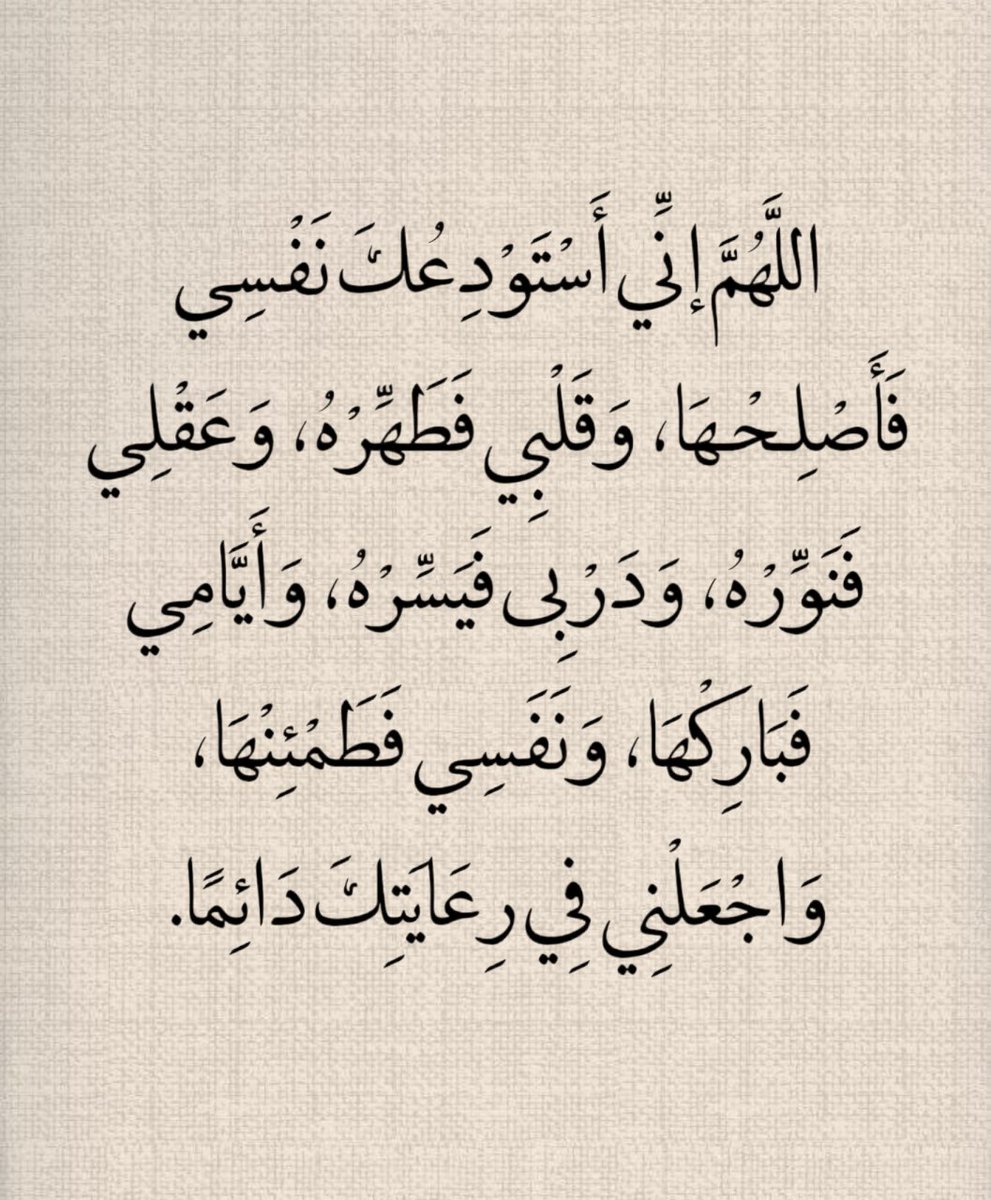 اللَّهُمَّ إنِّي أَسْتَوْدِعُكَ نَفْسِي
فَأَصْلِحْهَا، وَقَلْبِي فَطَهِّرْهُ، وَعَقْلِي
فَنَوِّرْهُ، وَدَرْبِى فَيَسِّرْهُ، وَأَيَّامِي
فَبَارِكْهَا، وَنَفَسِي فَطَمْئِنْهَا،
وَاجْعَلْنِي فِي رِعَايَتِكَ دَائِمًا.